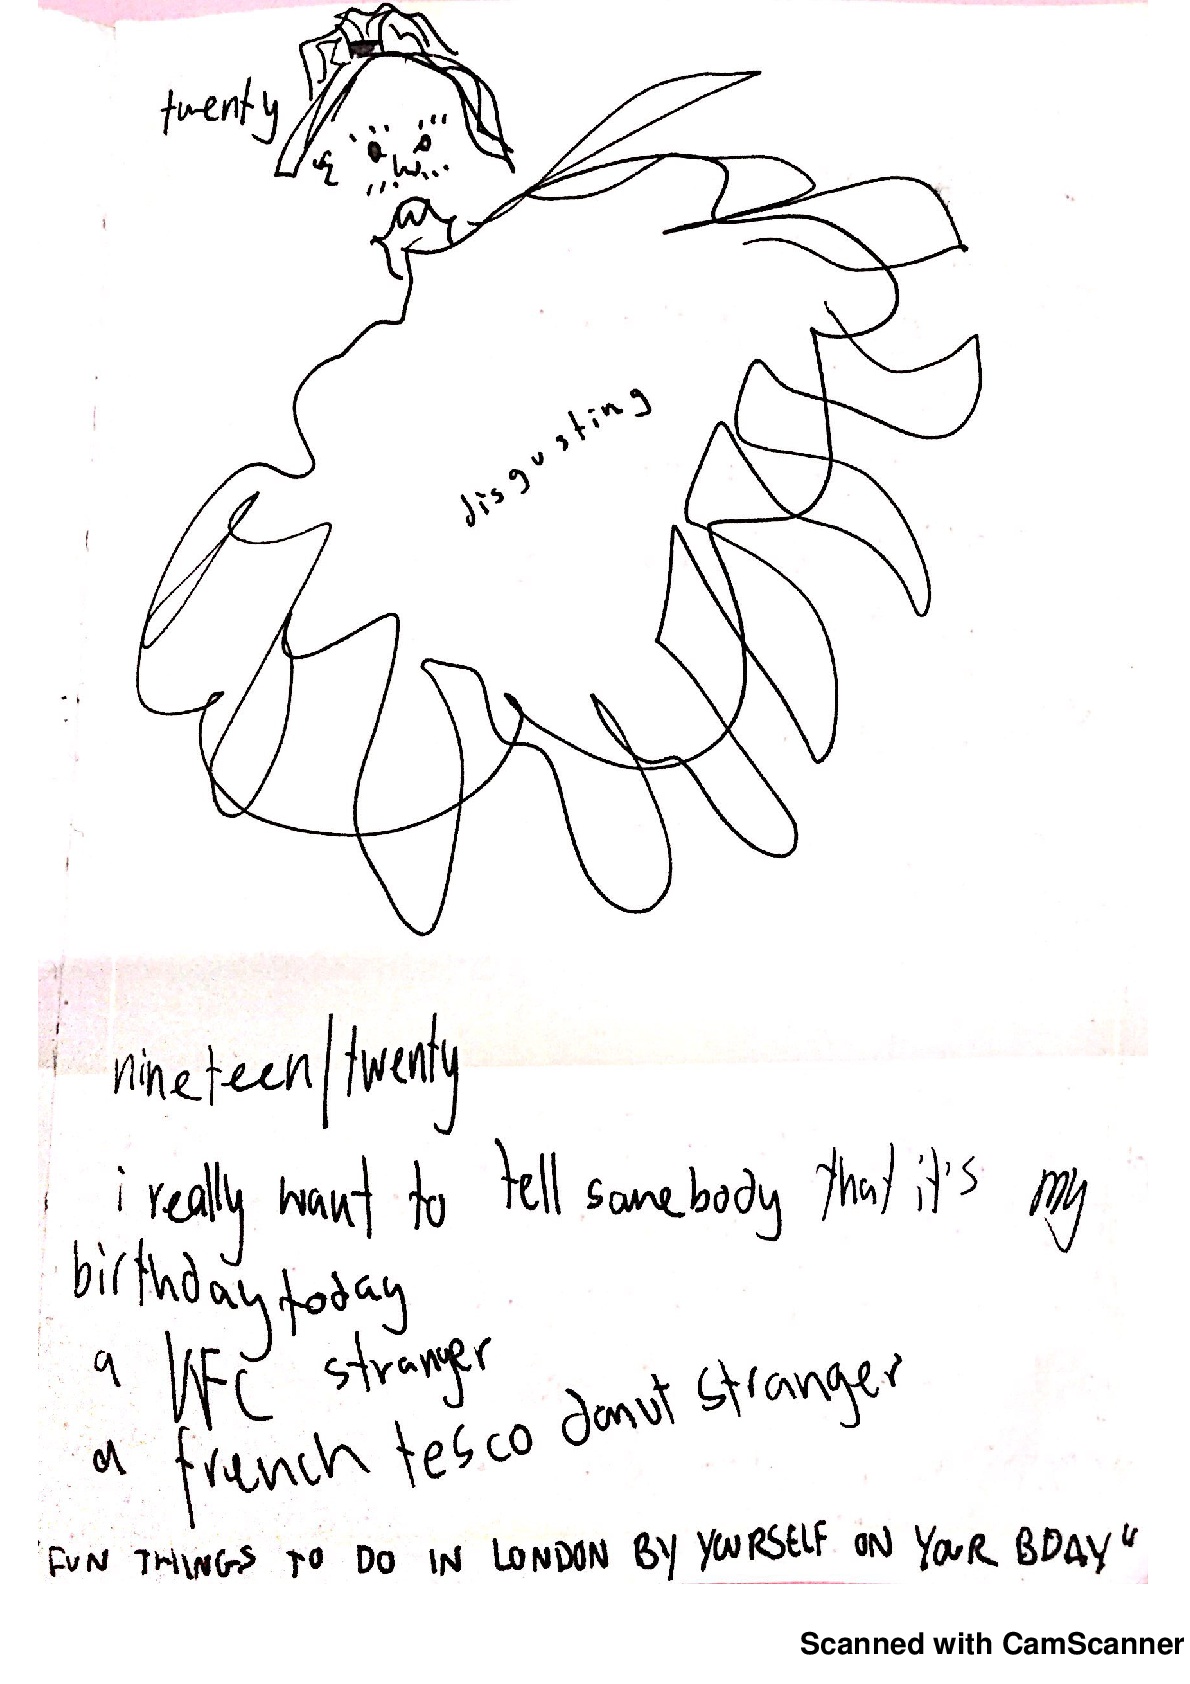 twenty
disgusting
nineteen/twenty
i really want to tell somebody that it's my
birthday today
a KFC stranger
a french tesco donut stranger
"FUN THINGS TO DO IN LONDON BY YOURSELF ON YOUR BDAY"
Scanned with CamScanner